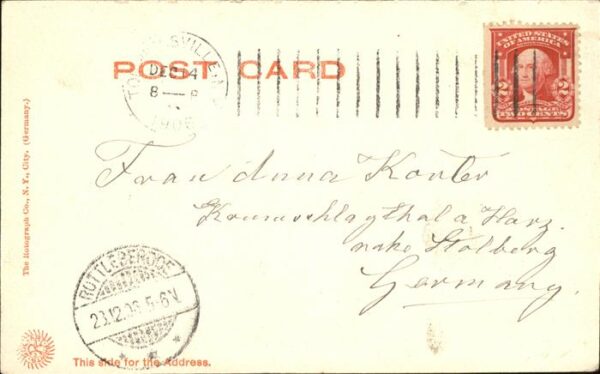 POST CARD
DEC 14
8
1906
UNITED STATES
OF AMERICA
2 2
POSTAGE
TWO CENTS
The Rotograph Co., N. Y., City. (Germany.)
Frau Anna Korter
a Harz.
nahe Stolberg
Germany.
ROTTLEBERODE
23.12.06.5-6N
This side for the Address.